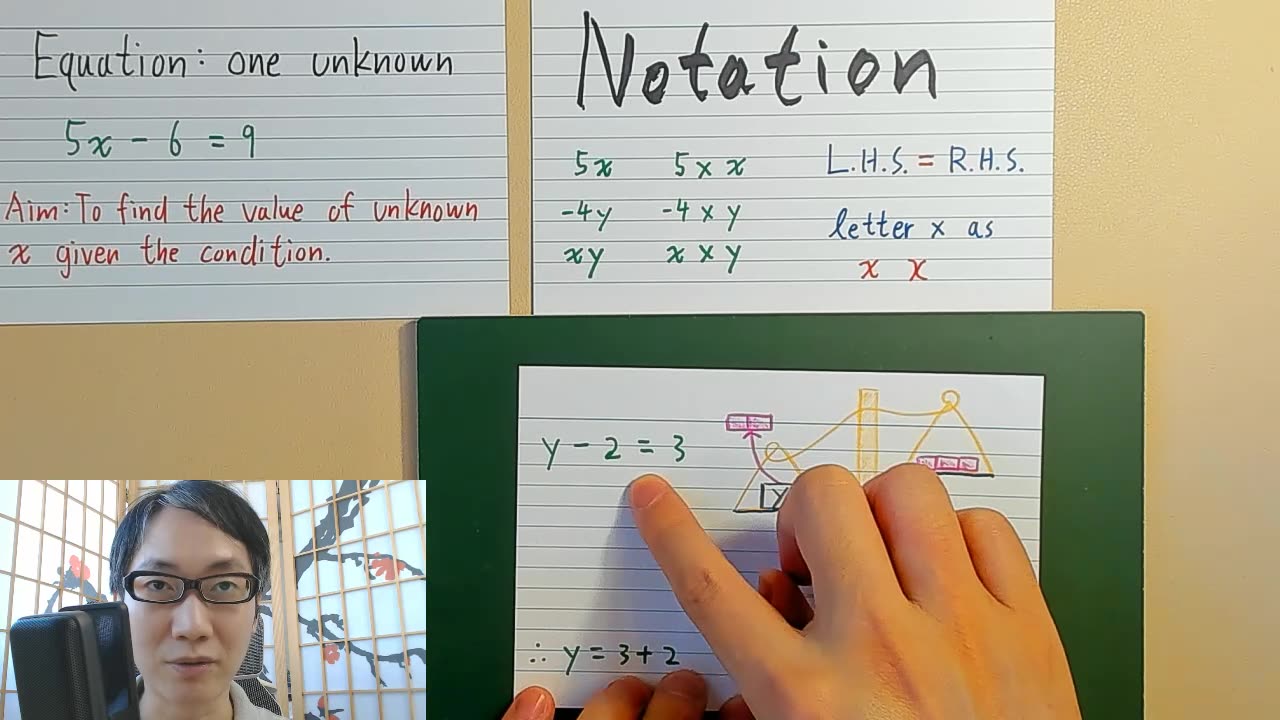 Equation: one unknown
5x - 6 = 9
Aim: To find the value of unknown
x given the condition.
Notation
5x 5 × x
-4y -4 × y
xy x × y
L.H.S. = R.H.S.
letter x as
x x
y - 2 = 3
y
∴ y = 3 + 2